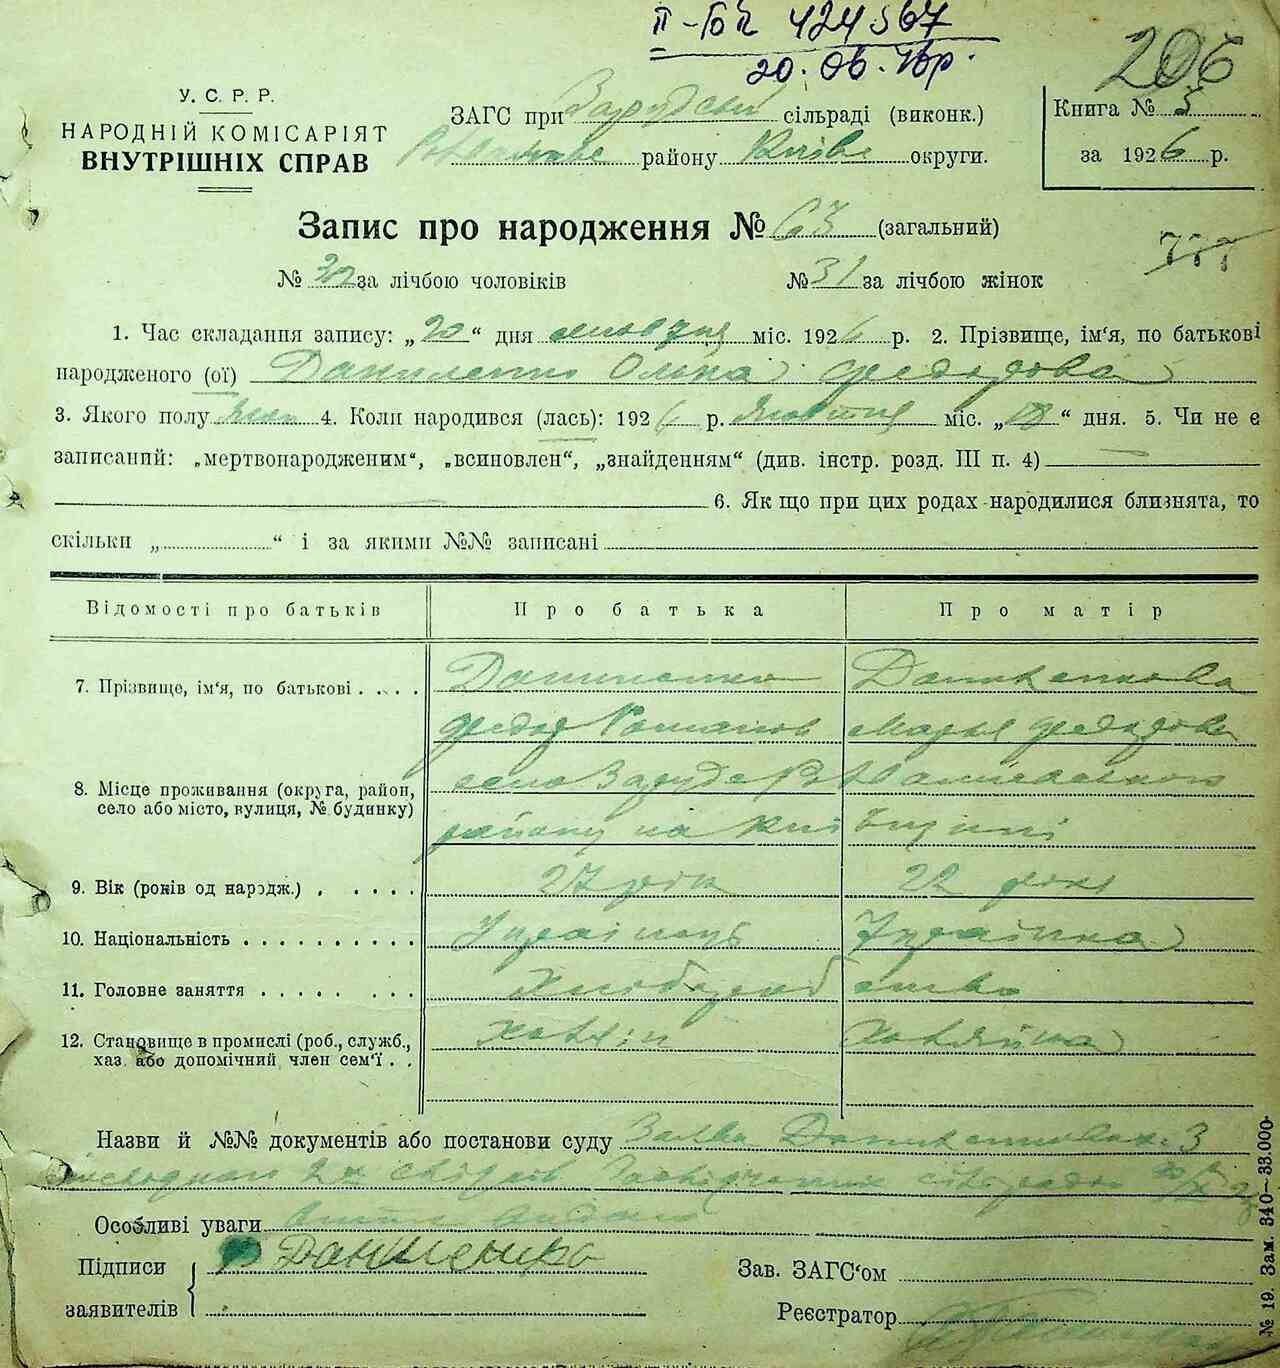 ІІ-БК 424567
20.06. 206
У. С. Р. Р.
НАРОДНІЙ КОМІСАРІЯТ
ВНУТРІШНІХ СПРАВ
ЗАГС при Зарудській сільраді (виконк.)
району Київ округи.
Книга № 3
за 1926 р.
Запис про народження № 63 (загальний)
777
№ 32 за лічбою чоловіків № 31 за лічбою жінок
1. Час складання запису: „20“ дня жовтня міс. 1926 р. 2. Прізвище, ім‘я, по батькові
народженого (ої) Даниленко Ольга Федорова
3. Якого полу жін 4. Коли народився (лась): 1926 р. жовтня міс. „18“ дня. 5. Чи не є
записаний: „мертвонародженим“, „всиновлен“, „знайденням“ (див. інстр. розд. III п. 4)
6. Як що при цих родах народилися близнята, то
скільки „ “ і за якими №№ записані
Відомості про батьків Про батька Про матір
7. Прізвище, ім‘я, по батькові . . . . Даниленко Даниленкова
Федор Романов Марья Федорова
8. Місце проживання (округа, район, село Заруддє
село або місто, вулиця, № будинку) району на Київщині
9. Вік (років од народж.) . . . . . 27 рік 22 роки
10. Національність . . . . . . . . . . Українець Українка
11. Головне заняття . . . . . . . . Хліборобство
12. Становище в промислі (роб., служб., Хазяїн Хазяйка
хаз. або допомічний член сем‘ї . .
Назви й №№ документів або постанови суду Заява З
2х свідків
Особливі уваги
Підписи Ф Даниленко
заявителів
Зав. ЗАГС‘ом
Реєстратор
№ 19. Зам. 340—33.000